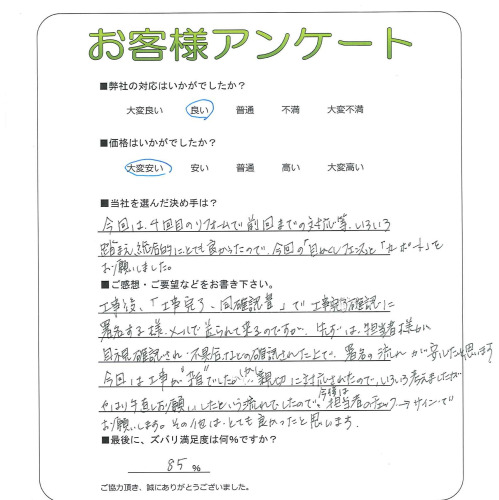 お客様アンケート
■弊社の対応はいかがでしたか？
大変良い 良い 普通 不満 大変不満
■価格はいかがでしたか？
大変安い 安い 普通 高い 大変高い
■当社を選んだ決め手は？
今回は、4回目のリフォームで前回までの対応等、いろいろ
踏まえ、総合的にとても良かったので、今回の「目かくしフェンス」と「カーポート」を
お願いしました。
■ご感想・ご要望などをお書き下さい。
工事後、「工事完了、同確認書」で工事完了確認に
署名する様、メールで送られて来るのですが、先ずは、担当者様が
目視確認され、不具合なしの確認されたことで、署名の流れが安心だと思います。
今回は工事が"雑"でした(が)親切に対応されたので、いろいろ考えましたが
やはり手直しお願いしたという流れでしたので、今後は担当者のチェック→サインで
お願いします。その他は、とても良かったと思います。
■最後に、ズバリ満足度は何％ですか？
85 ％
ご協力頂き、誠にありがとうございました。